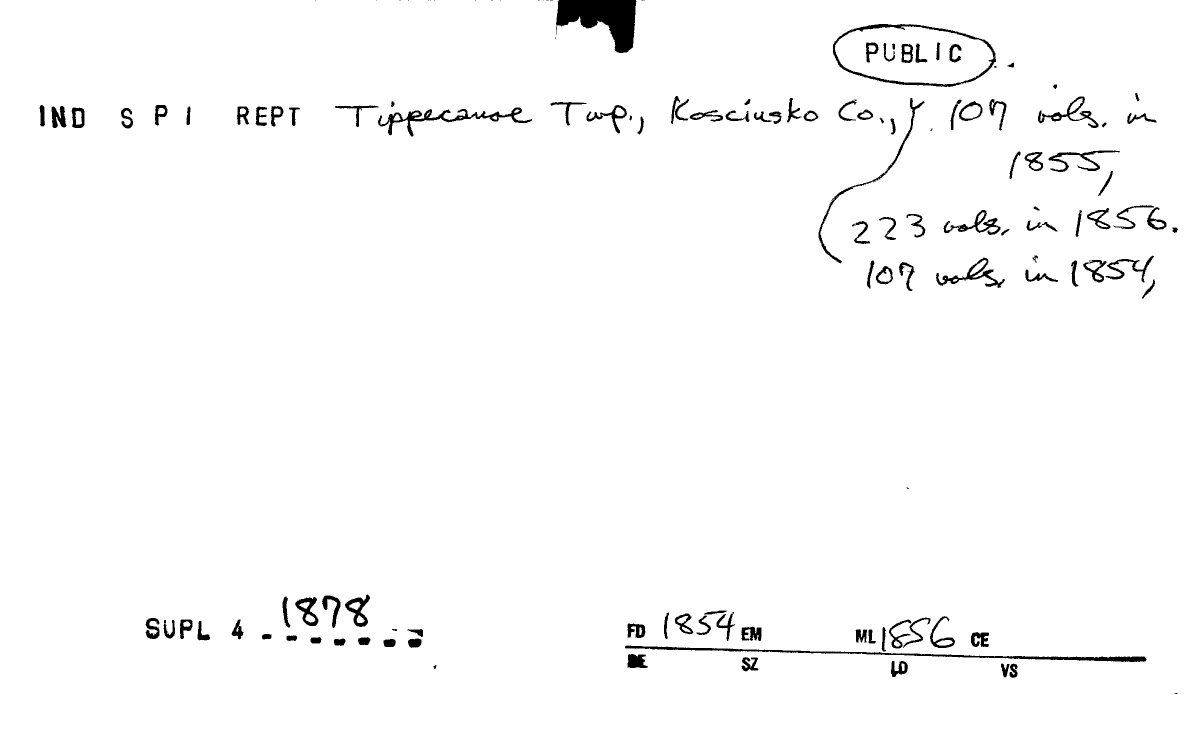 PUBLIC
IND S P I REPT Tippecanoe Twp., Kosciusko Co., 107 vols. in
1855,
223 vols. in 1856.
107 vols. in 1854,
SUPL 4 1878
FD 1854 EM ML 1856 CE
DE SZ LD VS